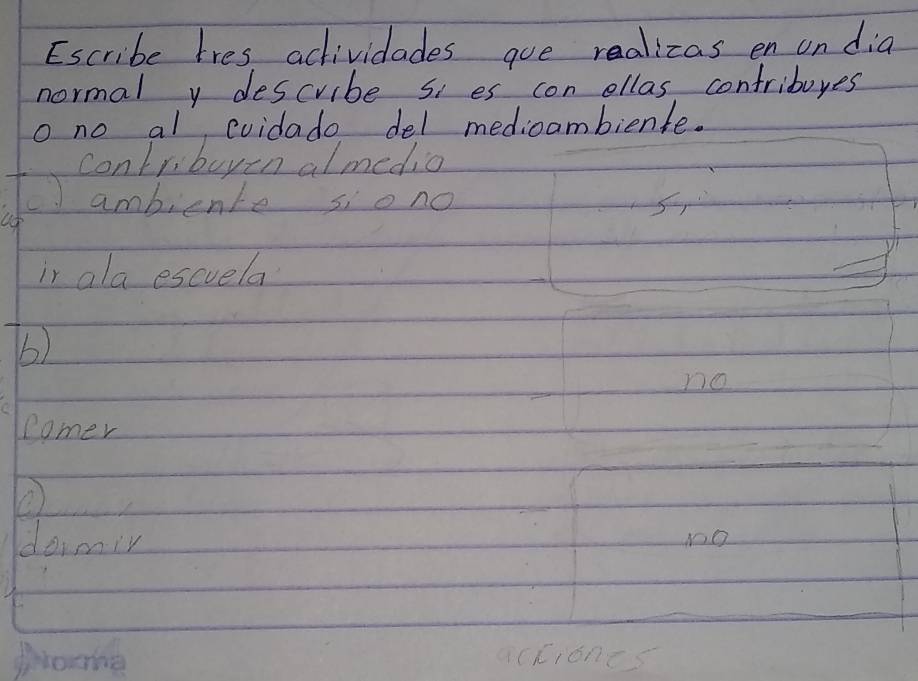 Escribe tres actividades que realizas en un dia
normal y describe si es con ellas contribuyes
o no al cuidado del medioambiente.
contribuyen al medio
c) ambiente si o no
si
ir ala escuela
b)
no
comer
dormir
no
acciones
Norma